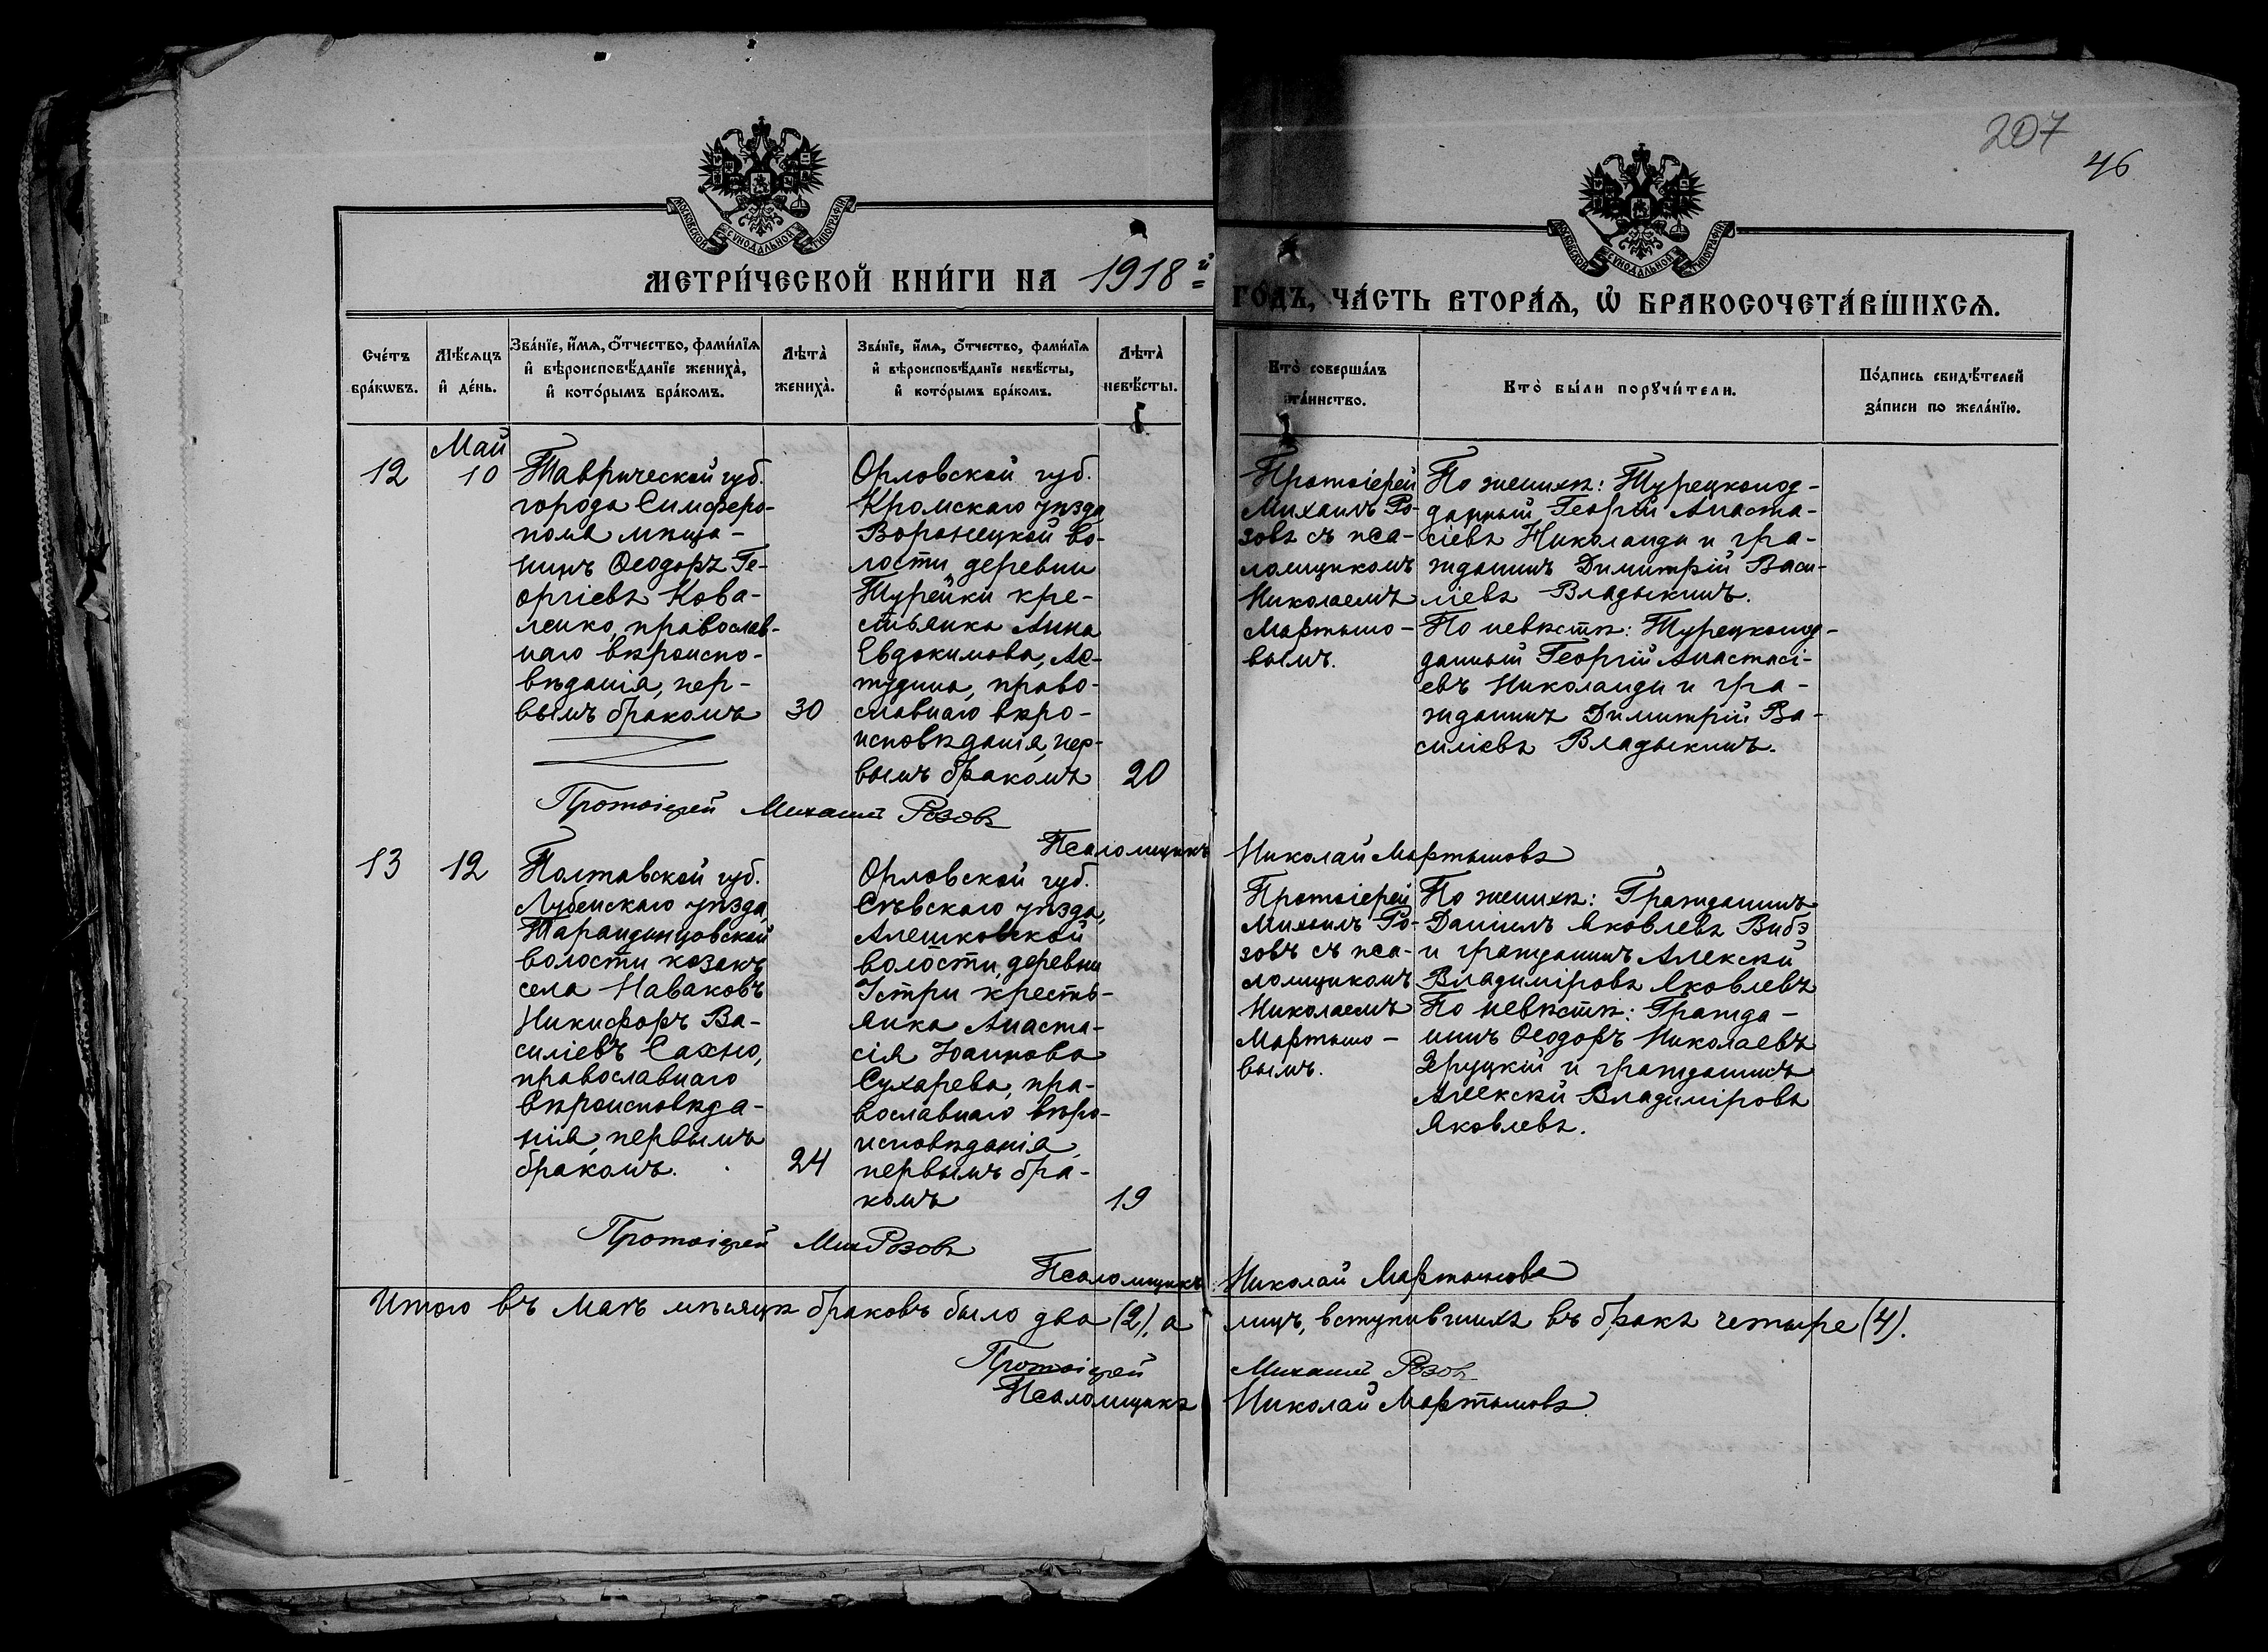 207
46
МОСКОВСКОЙ СѴНОДАЛЬНОЙ ТИПОГРАФІИ
МОСКОВСКОЙ СѴНОДАЛЬНОЙ ТИПОГРАФІИ
МЕТРИ́ЧЕСКОЙ КНИ́ГИ НА 1918й
ГО́ДЪ, ЧА́СТЬ ВТОРА́Ѧ, Ѡ҆ БРАКОСОЧЕТА́ВШИХСѦ.
Сче́тъ
бра́кѡвъ.
Мѣ́сѧцъ
и҆ де́нь.
Зва́нїе, и҆́мѧ, ѻ҆́тчество, фами́лїѧ
и҆ вѣроисповѣ́данїе жениха̀,
и҆ кото́рымъ бра́комъ.
Лѣта̀
жениха̀.
Зва́нїе, и҆́мѧ, ѻ҆́тчество, фами́лїѧ
и҆ вѣроисповѣ́данїе невѣ́сты,
и҆ кото́рымъ бра́комъ.
Лѣта̀
невѣ́сты.
Кто̀ соверша́лъ
та́инство.
Кто̀ бы́ли порꙋчи́тели.
По́дпись свидѣ́телей
за́писи по жела́нїю.
Май
12
10
Таврической губ.
города Симферо-
поля мѣща-
нинъ Ѳеодоръ Ге-
оргіевъ Кова-
ленко, православ-
наго вѣроиспо-
вѣданія, пер-
вымъ бракомъ
30
Орловской губ.
Кромскаго уѣзда
Воронецкой во-
лости деревни
Турейки кре-
стьянка Анна
Евдокимова, Ас-
тудина, право-
славнаго вѣро-
исповѣданія, пер-
вымъ бракомъ
20
Протоіерей
Михаилъ Ро-
зовъ съ пса-
ломщикомъ
Николаемъ
Мартыно-
вымъ.
По женихѣ: Турецкопод-
данный Георгій Анаста-
сіевъ Николаиди и гра-
жданинъ Димитрій Васи-
ліевъ Владыкинъ.
По невѣстѣ: Турецкопод-
данный Георгій Анастасі-
евъ Николаиди и гра-
жданинъ Димитрій Ва-
силіевъ Владыкинъ.
Протоіерей Михаилъ Розовъ
Псаломщикъ Николай Мартыновъ
13
12
Полтавской губ.
Лубенскаго уѣзда,
Тарандинцовской
волости козакъ
села Наваковъ
Никифоръ Ва-
силіевъ Сахно,
православнаго
вѣроисповѣда-
нія, первымъ
бракомъ.
24
Орловской губ.
Сѣвскаго уѣзда,
Алешковской
волости, деревни
Істри кресть-
янка Анаста-
сія Іоаннова
Сухарева, пра-
вославнаго вѣро-
исповѣданія,
первымъ бра-
комъ
19
Протоіерей
Михаилъ Ро-
зовъ съ пса-
ломщикомъ
Николаемъ
Мартыно-
вымъ.
По женихѣ: Гражданинъ
Даніилъ Яковлевъ Вибэ
и гражданинъ Алексѣй
Владиміровъ Яковлевъ
По невѣстѣ: Гражда-
нинъ Ѳеодоръ Николаевъ
Друцкій и гражданинъ
Алексѣй Владиміровъ
Яковлевъ.
Протоіерей Мих Розовъ
Псаломщикъ Николай Мартыновъ
Итого въ Маѣ мѣсяцѣ браковъ было два (2), а лицъ, вступившихъ въ бракъ четыре (4).
Протоіерей Михаилъ Розовъ
Псаломщикъ Николай Мартыновъ.